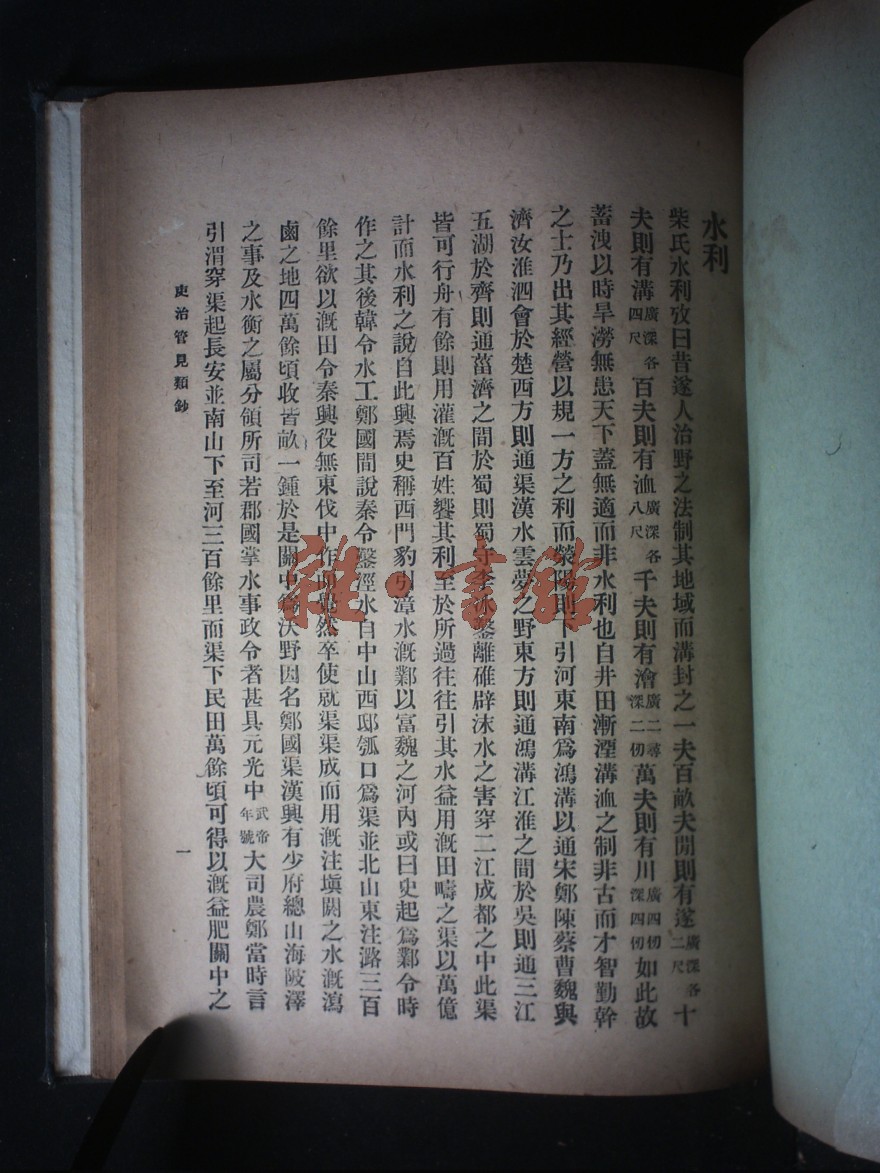 水利
柴氏水利攷曰昔遂人治野之法制其地域而溝封之一夫百畝夫閒則有遂廣深各二尺十
夫則有溝廣深各四尺百夫則有洫廣深各八尺千夫則有澮廣二尋深二仞萬夫則有川廣四仞深四仞如此故
蓄洩以時旱澇無患天下蓋無適而非水利也自井田漸湮溝洫之制非古而才智勤幹
之士乃出其經營以規一方之利而滎陽則下引河東南爲鴻溝以通宋鄭陳蔡曹魏與
濟汝淮泗會於楚西方則通渠漢水雲夢之野東方則通鴻溝江淮之間於吳則通三江
五湖於齊則通菑濟之間於蜀則蜀守李冰鑿離碓辟沫水之害穿二江成都之中此渠
皆可行舟有餘則用灌漑百姓饗其利至於所過往往引其水益用漑田疇之渠以萬億
計而水利之說自此興焉史稱西門豹引漳水漑鄴以富魏之河內或曰史起爲鄴令時
作之其後韓令水工鄭國間說秦令鑿涇水自中山西邸瓠口爲渠並北山東注潞三百
餘里欲以漑田令秦興役無東伐中作而覺然卒使就渠渠成而用漑注塡閼之水漑瀉
鹵之地四萬餘頃收皆畝一鍾於是關中爲沃野因名鄭國渠漢興有少府總山海陂澤
之事及水衡之屬分領所司若郡國掌水事政令者甚具元光中武帝年號大司農鄭當時言
引渭穿渠起長安並南山下至河三百餘里而渠下民田萬餘頃可得以漑益肥關中之
吏治管見類鈔
一
雜·書館